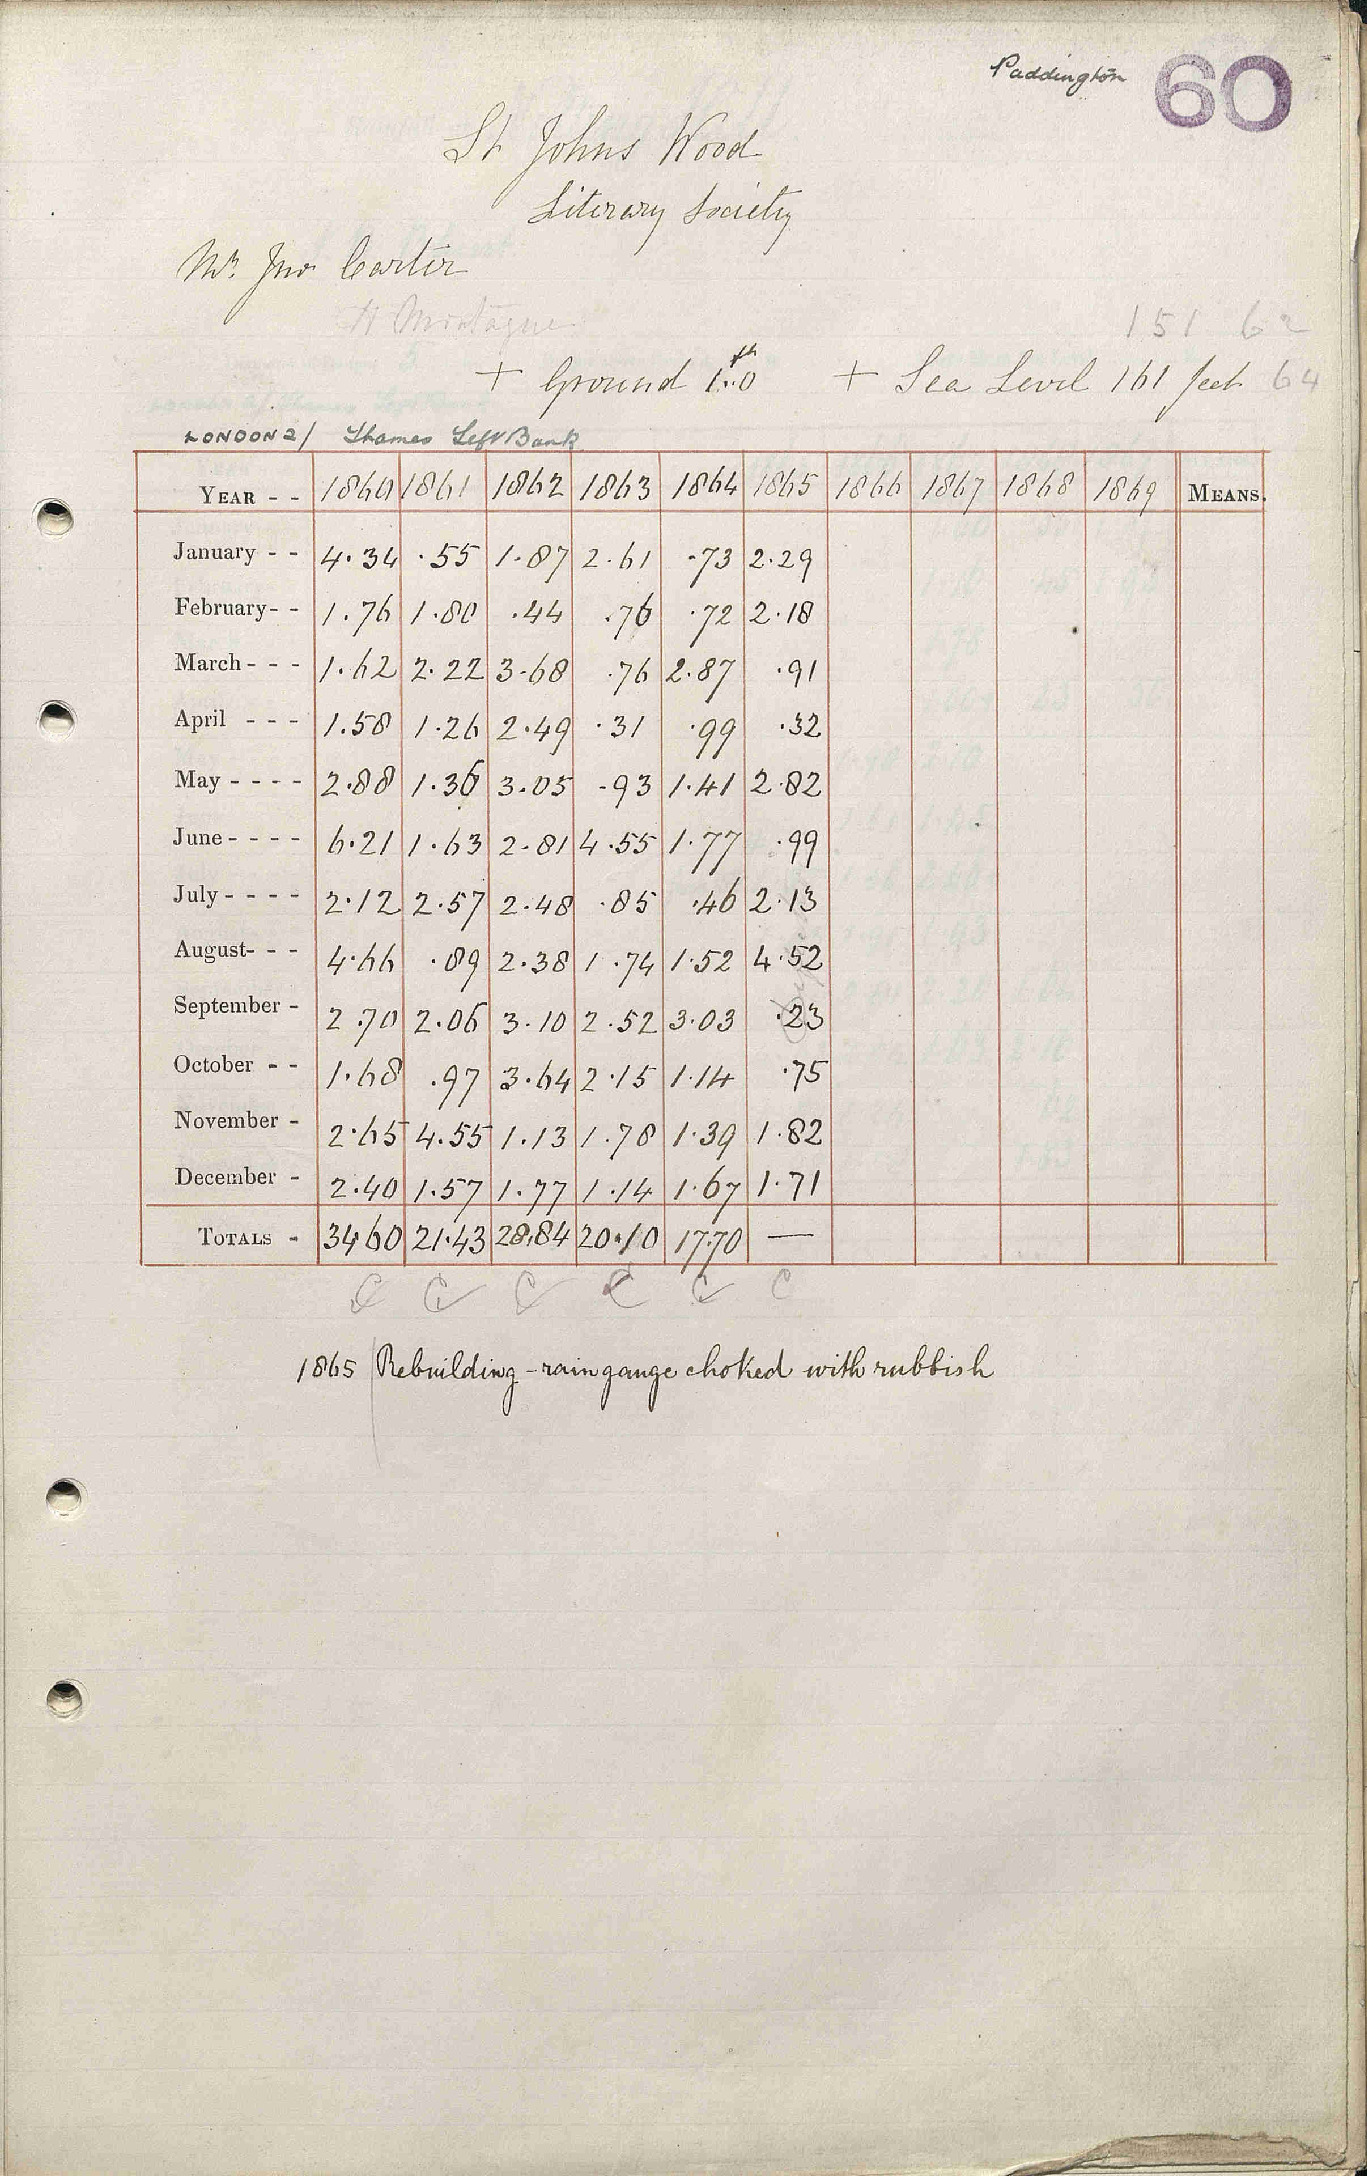 Paddington 60
St Johns Wood
Literary Society
Mr. Jno Carter
H Montague
151 62
+ Ground 1ft..0 + Sea Level 161 feet 64
LONDON 2/ Thames Left Bank
YEAR - - 1860 1861 1862 1863 1864 1865 1866 1867 1868 1869 MEANS.
January - - 4.34 .55 1.87 2.61 .73 2.29
February - - 1.76 1.80 .44 .76 .72 2.18
March - - - 1.62 2.22 3.68 .76 2.87 .91
April - - - 1.58 1.26 2.49 .31 .99 .32
May - - - - 2.88 1.36 3.05 .93 1.41 2.82
June - - - - 6.21 1.63 2.81 4.55 1.77 .99
July - - - - 2.12 2.57 2.48 .85 .46 2.13
August - - - 4.66 .89 2.38 1.74 1.52 4.52
September - 2.70 2.06 3.10 2.52 3.03 .23
October - - 1.68 .97 3.64 2.15 1.14 .75
November - 2.65 4.55 1.13 1.78 1.39 1.82
December - 2.40 1.57 1.77 1.14 1.67 1.71
TOTALS - 34.60 21.43 28.84 20.10 17.70 —
C C C C C C
1865 Rebuilding - rain gauge choked with rubbish